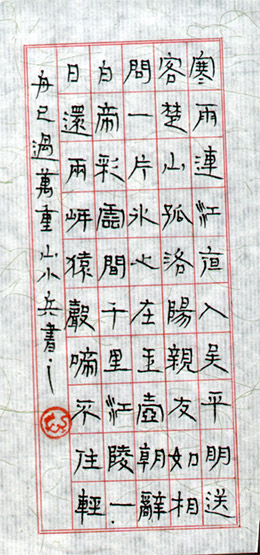 寒雨連江亱入吴平明送
客楚山孤洛陽親友如相
問一片氷心在玉壺朝辭
白帝彩雲間千里江陵一
日還兩岸猿聲啼不住輕
舟已過萬重山小兵書